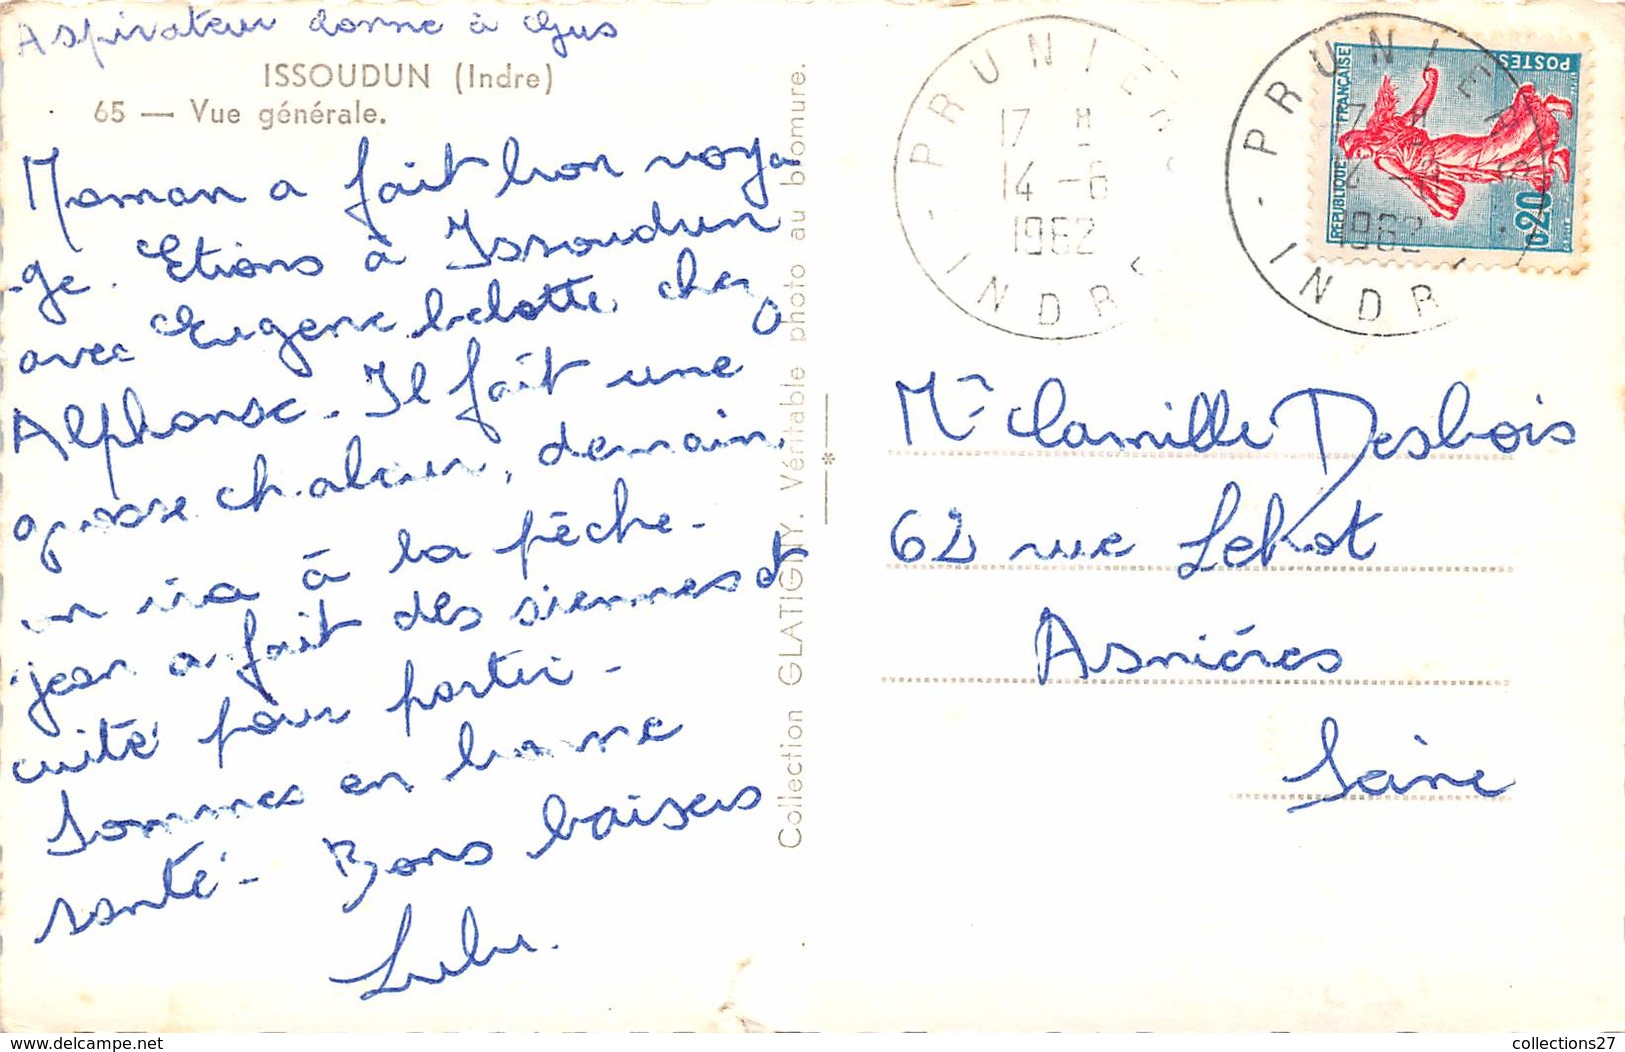 Aspirateur donne à Gus
ISSOUDUN (Indre)
65 — Vue générale.
Maman a fait bon voya
-ge. Etions à Issoudun
avec Eugene belotte chez
Alphonse - Il fait une
grosse chaleur, demain
on ira à la pêche -
jean a fait des siennes et
cuité pour partir -
Sommes en bonne
santé - Bons baisers
Lulu.
Collection GLATIGNY. Véritable photo au bromure.
PRUNIERS
17 H
14 - 6
1962
INDRE
PRUNIERS
17 H
14 - 6
1962
INDRE
REPUBLIQUE FRANÇAISE
POSTES
0,20
Mr Camille Desbois
62 rue Lehot
Asniéres
Seine
collections27